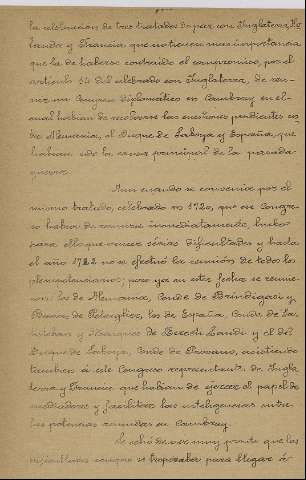 la celebración de tres tratados de paz con Inglaterra, Ho
landa y Francia que no tienen mas importancia
que la de haberse contraido el compromiso, por el
articulo 54 del celebrado con Inglaterra, de reu-
nir un Congreso diplomático en Cambray en el
cual habian de resolverse las cuestiones pendientes en
tre Alemania, el Duque de Saboya y España, que
habian sido la causa principal de la pasada
guerra.
Aun cuando se convenia por el
mismo tratado, celebrado en 1720, que ese Congre
so habia de reunirse inmediatamente, hubo
para ello que vencer sérias dificultades y hasta
el año 1722 no se efectuó la reunión de todos los
plenipotenciarios; pero ya en esta fecha se reunie-
ron: los de Alemania, Conde de
Baron de los de España, Conde de San
tisteban y Marques de Beretti Landi y el del
Duque de Saboya, Conde de Provana, asistiendo
tambien á este Congreso representantes de Ingla
terra y Francia que habian de ejercer el papel de
mediadores y facilitar las inteligencias entre
las potencias reunidas en Cambray.
Se echó de ver muy pronto que las
se tropezaba para llegar á